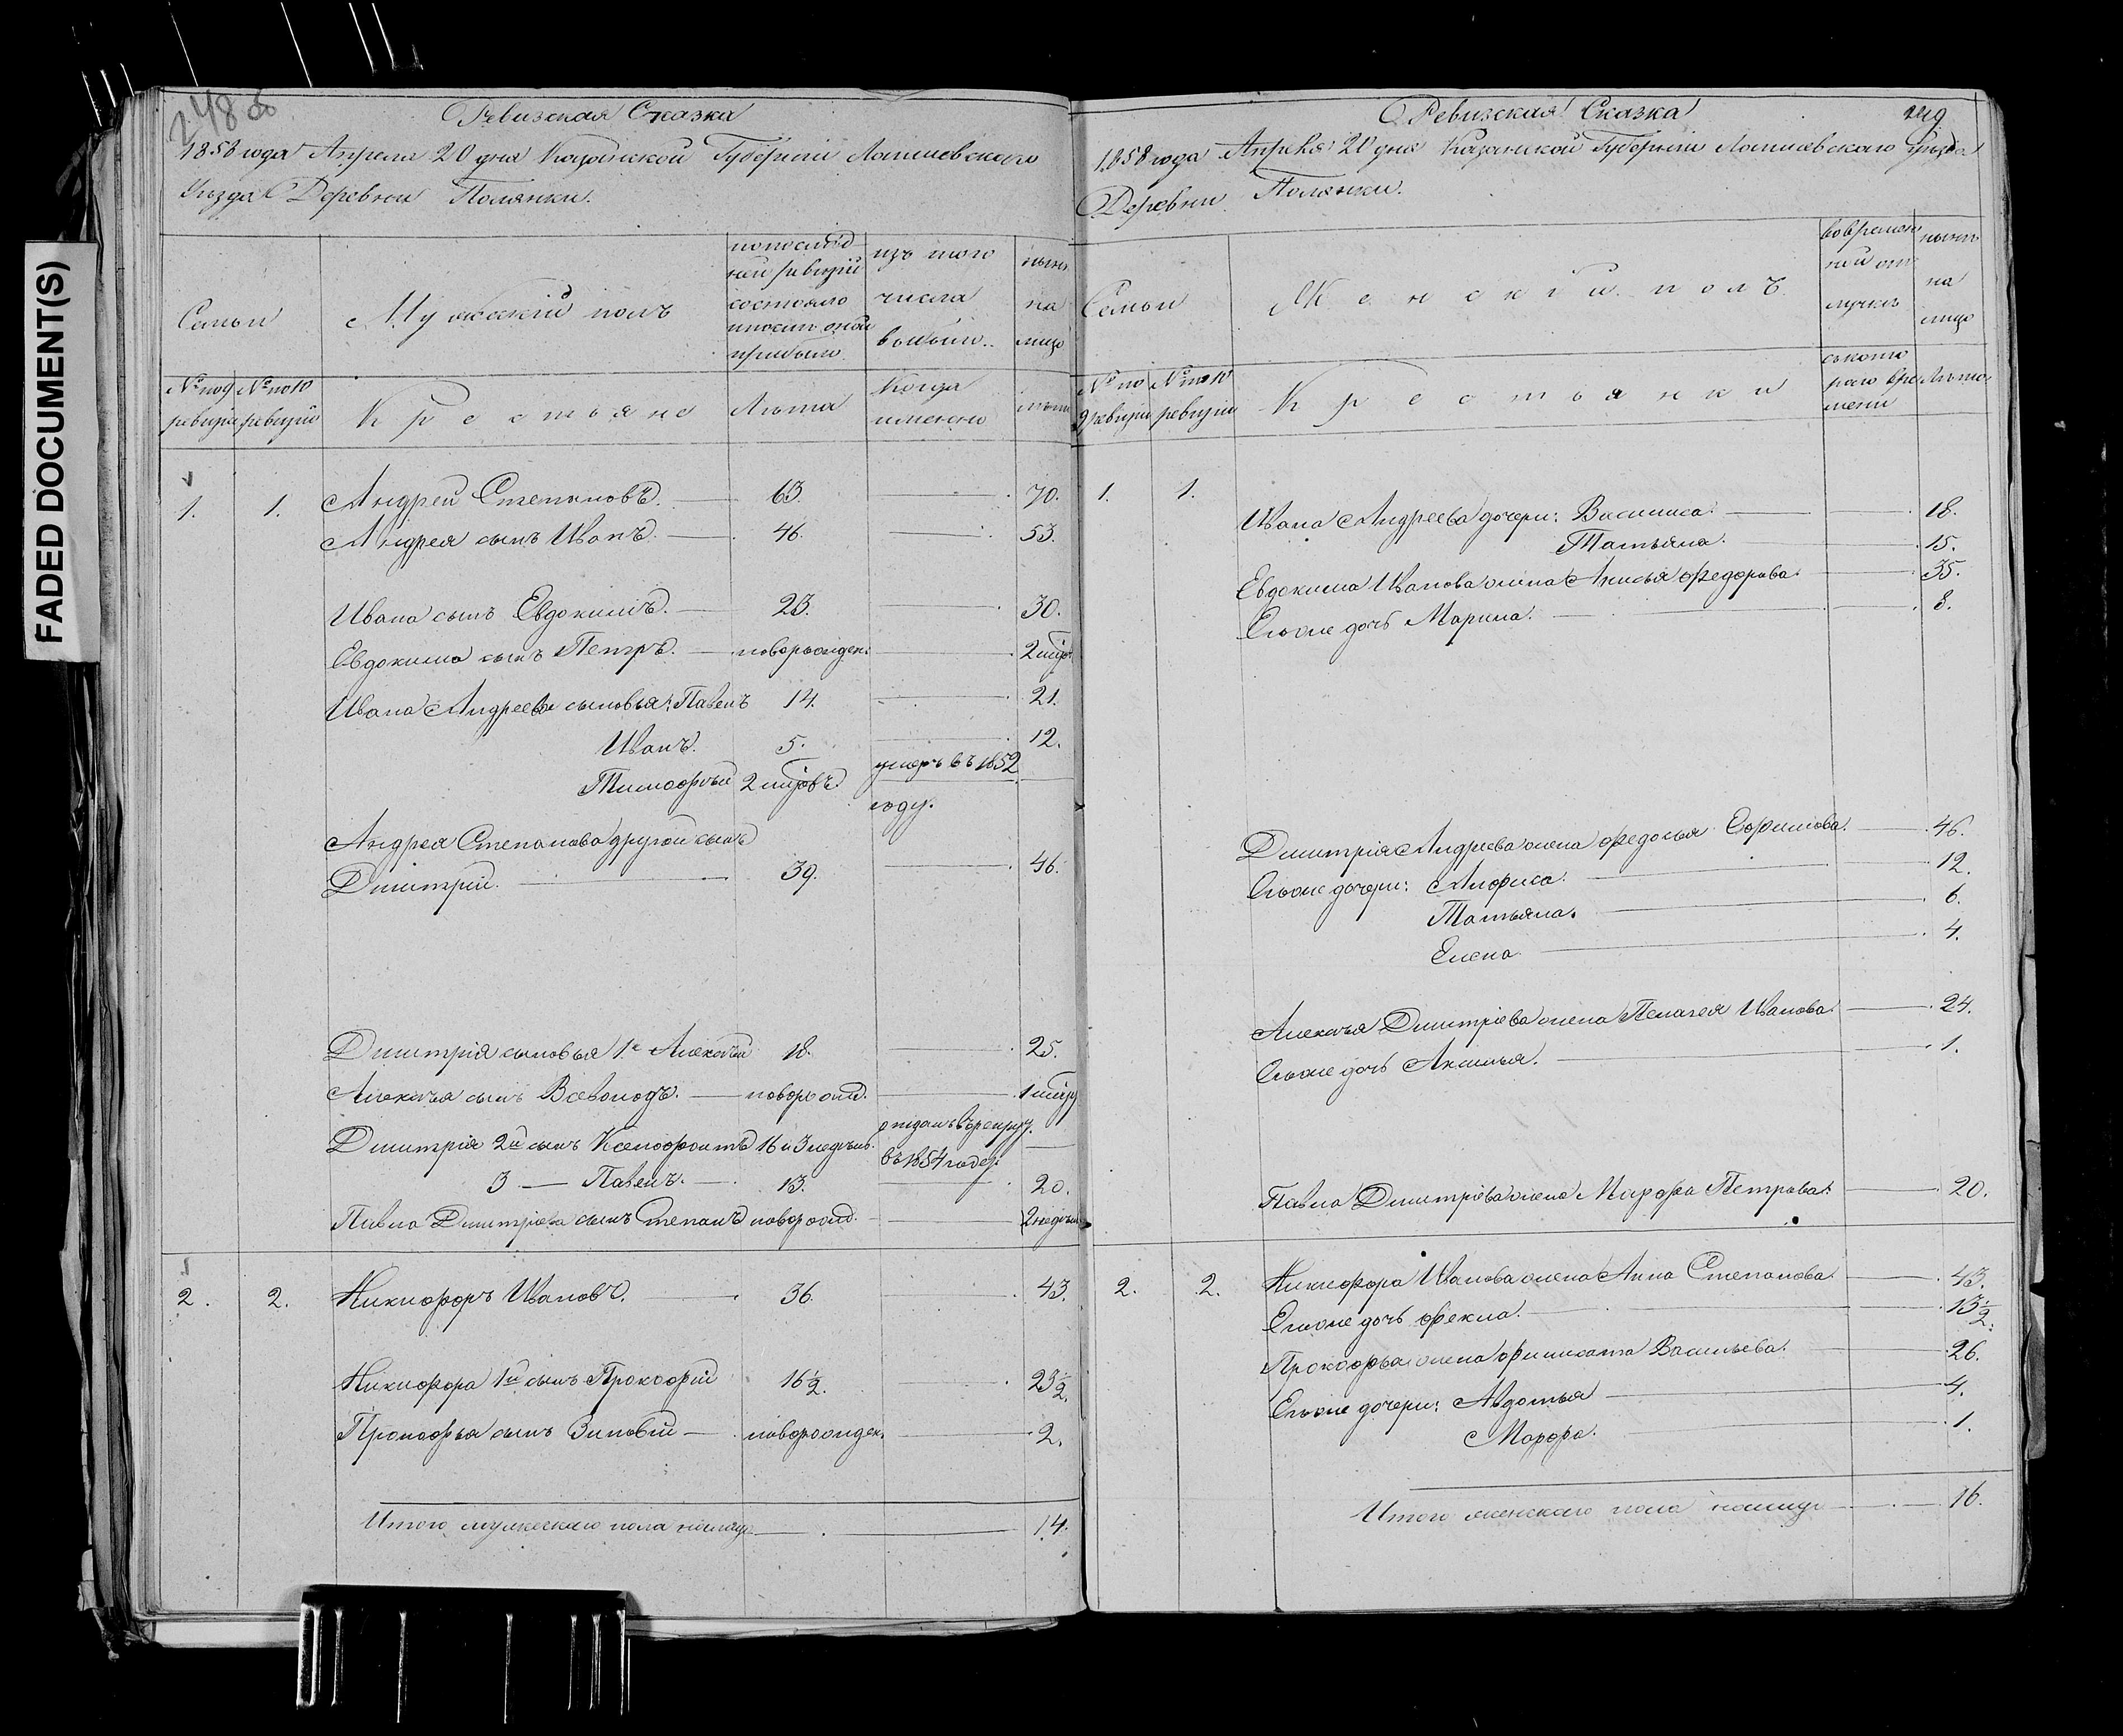 FADED DOCUMENT(S)
248 об
Ревизская Сказка
1858 года Апреля 20 дня Казанской Губернiи Лаишевскаго
Уѣзда Деревни Полянки.
Семьи
Мужескiй полъ
по послѣд
ней ревизiи
состояло
и послѣ оной
прибыло
изъ того
числа
выбыло.
нынѣ
на
лицо
№ по 9
ревизiи
№ по 10
ревизiи
Крестьяне
Лѣта
Когда
именно
лѣта
1. 1. Андрей Степановъ. 63. 70.
Андрея сынъ Иванъ. 46. 53.
Ивана сынъ Евдокимъ. 23. 30.
Евдокима сынъ Петръ. новорожден. 2 мѣс.
Ивана Андреева сыновья: Павелъ 14. 21.
Иванъ. 5. 12.
Тимофѣй 2 мѣсовъ. умеръ въ 1852
году.
Андрея Степанова другой сынъ
Дмитрiй. 39. 46.
Дмитрiя сыновья 1й Алексѣй 18. 25.
Алексѣя сынъ Всеволодъ. новорожд. 1 мѣсу
Дмитрiя 2й сынъ Ксенофонтъ 16 и 3 недѣль. отданъ въ рекруу.
въ 1854 году.
3 — Павелъ. 13. 20.
Павла Дмитрiева сынъ Степанъ новорожд. 2 недѣли
2. 2. Никифоръ Ивановъ. 36. 43.
Никифора 1й сынъ Прокофiй 16½. 23½.
Прокофья сынъ Зиновiй новорожден. 2.
Итого мужескаго пола налицо 14.
Ревизская Сказка
249
1858 года Апреля 20 дня Казанской Губернiи Лаишевскаго уѣзда
Деревни Полянки.
Семьи
Женскiй полъ
во времен
ной от
лучкѣ
нынѣ
на
лицо
№ по
9 ревизiи
№ по 10
ревизiи
Крестьянки
съ кото
раго вре
мени
Лѣта
1. 1. Ивана Андреева дочери: Василиса. 18.
Татьяна. 15.
Евдокима Иванова жена Анисья Федорова. 35.
Ихъ же дочь Марина. 8.
Дмитрiя Андреева жена Федосья Ефимова. 46.
Ихъ же дочери: Анфиса. 12.
Татьяна. 6.
Елена 4.
Алексѣя Дмитрiева жена Пелагея Иванова. 24.
Ихъ же дочь Аксинья. 1.
Павла Дмитрiева жена Марфа Петрова. 20.
2. 2. Никифора Иванова жена Анна Степанова. 43.
Ихъ же дочь Фекла. 13½.
Прокофья жена Филисата Васильева. 26.
Ихъ же дочери: Авдотья 4.
Марфа. 1.
Итого женскаго пола налицо 16.